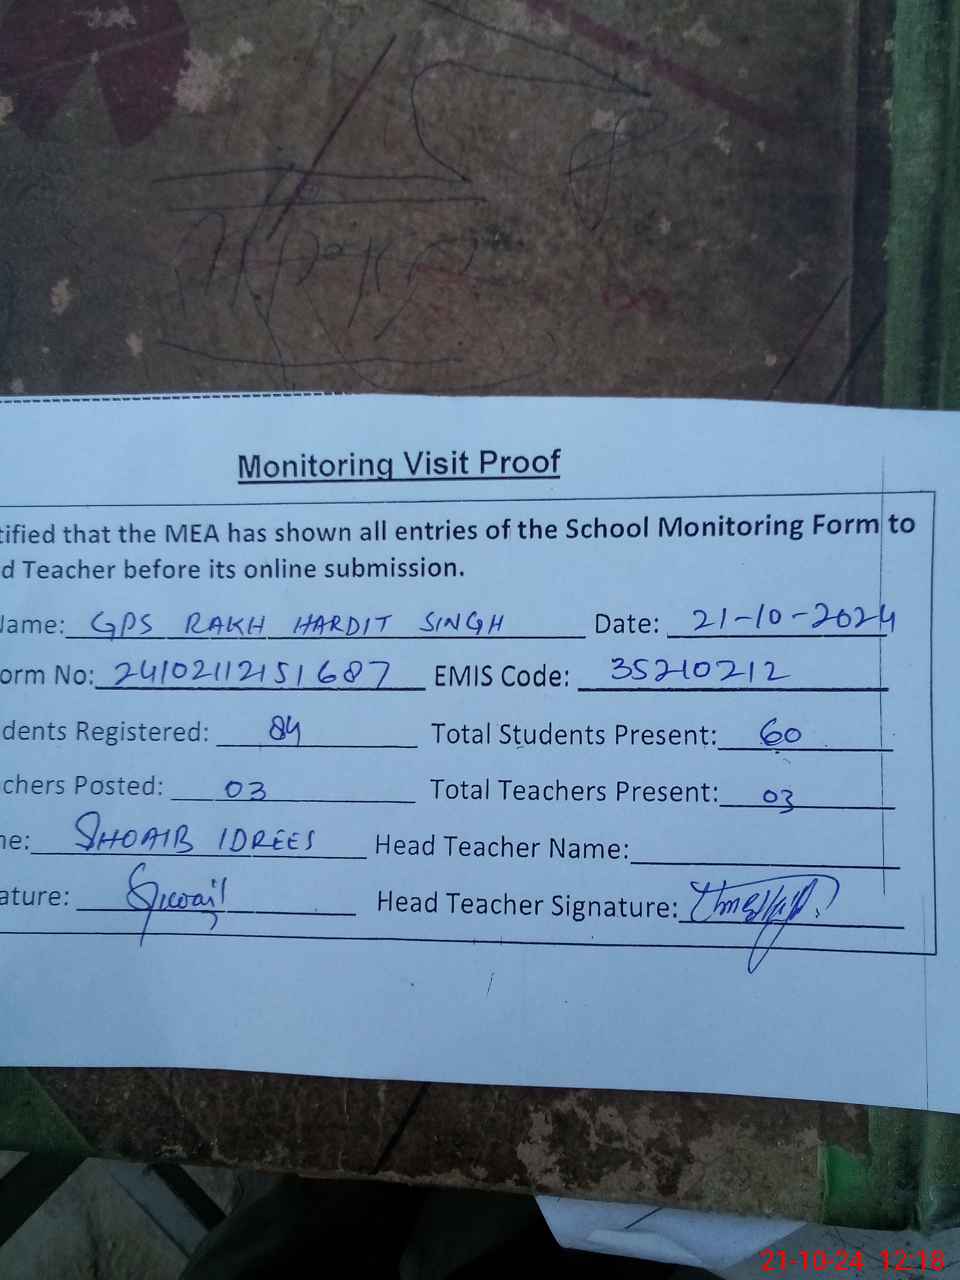 Monitoring Visit Proof
tified that the MEA has shown all entries of the School Monitoring Form to
d Teacher before its online submission.
Name: GPS RAKH HARDIT SINGH Date: 21-10-2024
orm No: 24102112151687 EMIS Code: 35210212
dents Registered: 84 Total Students Present: 60
chers Posted: 03 Total Teachers Present: 03
ne: SHOAIB IDREES Head Teacher Name:
ature: Shoaib Head Teacher Signature:
21-10-24 12:18